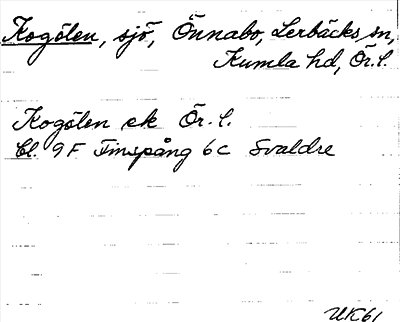 Kogölen, sjö, Önnabo, Lerbäcks sn,
Kumla hd, Ör.l.
Kogölen ek Ör.l.
Bl. 9F Finspång 6c Svaldre
UK61